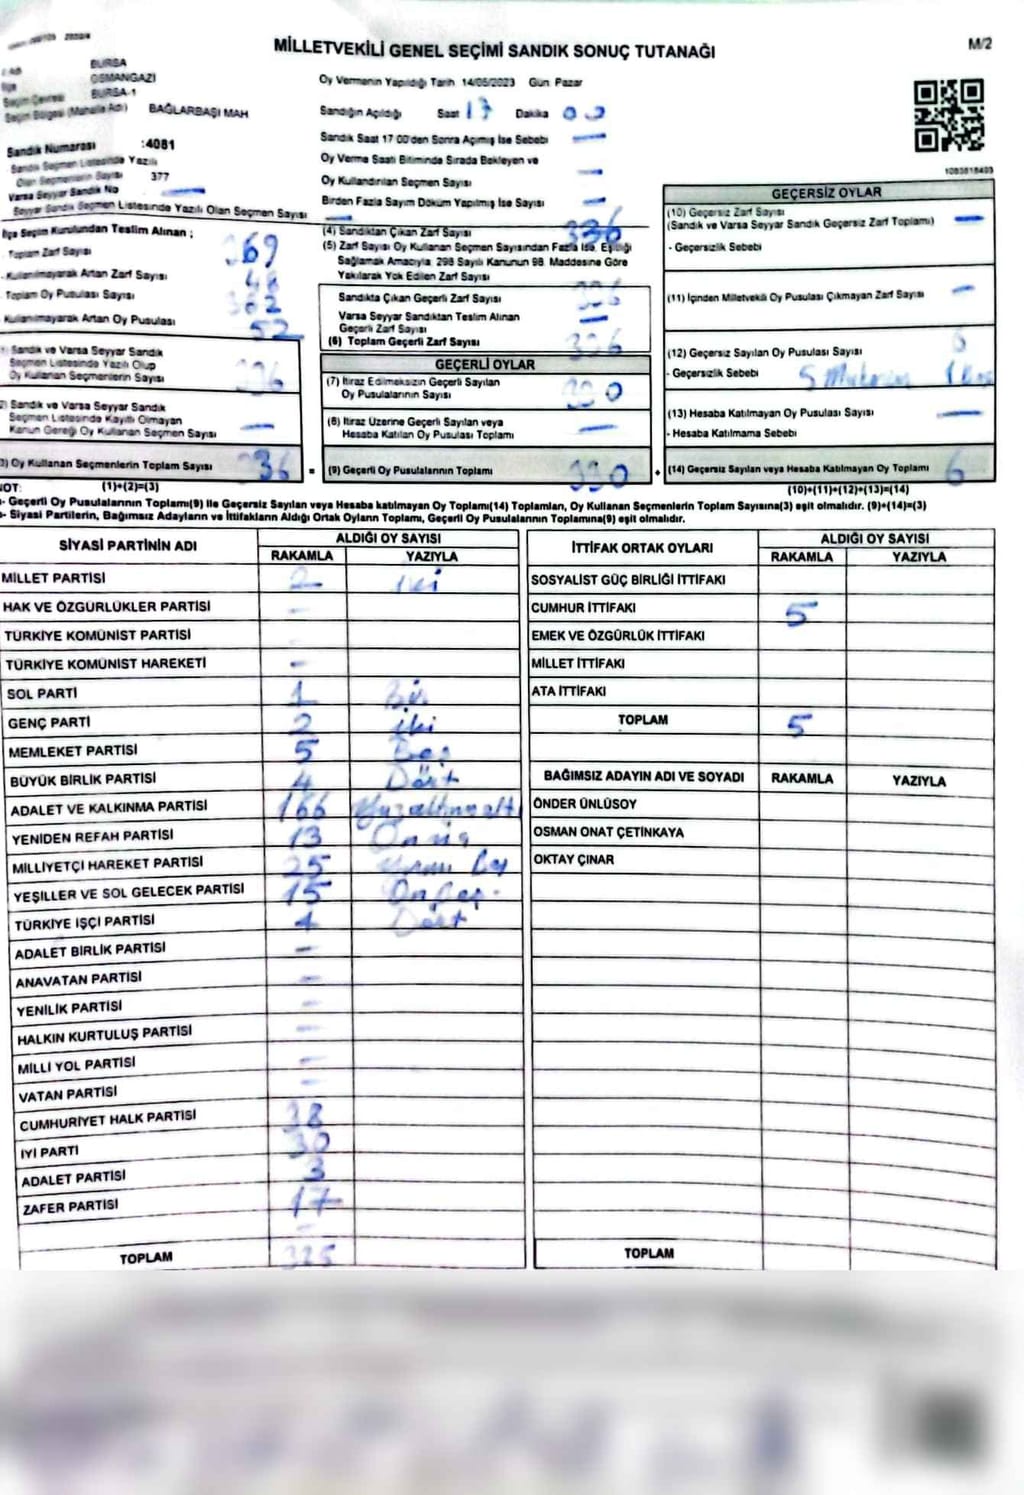 MİLLETVEKİLİ GENEL SEÇİMİ SANDIK SONUÇ TUTANAĞI
M/2
BURSA
OSMANGAZİ
BURSA-1
Seçim Bölgesi (Mahalle Adı) BAĞLARBAŞI MAH
Sandık Numarası :4081
Sandık Seçmen Listesinde Yazılı
Olan Seçmenlerin Sayısı 377
Varsa Seyyar Sandık No —
Seyyar Sandık Seçmen Listesinde Yazılı Olan Seçmen Sayısı —
Oy Vermenin Yapıldığı Tarih 14/05/2023 Gün Pazar
Sandığın Açıldığı Saat 17 Dakika 00
Sandık Saat 17 00'den Sonra Açımış İse Sebebi —
Oy Verme Saati Bitiminde Sırada Bekleyen ve
Oy Kullandırılan Seçmen Sayısı —
Birden Fazla Sayım Döküm Yapılmış İse Sayısı —
1083818403
İlçe Seçim Kurulundan Teslim Alınan ;
Toplam Zarf Sayısı 369
Kullanılmayarak Artan Zarf Sayısı
Toplam Oy Pusulası Sayısı 382
Kullanılmayarak Artan Oy Pusulası 52
1) Sandık ve Varsa Seyyar Sandık
Seçmen Listesinde Yazılı Olup
Oy Kullanan Seçmenlerin Sayısı 336
2) Sandık ve Varsa Seyyar Sandık
Seçmen Listesinde Kayıtlı Olmayan
Kanun Gereği Oy Kullanan Seçmen Sayısı —
3) Oy Kullanan Seçmenlerin Toplam Sayısı 336 =
(4) Sandıktan Çıkan Zarf Sayısı 336
(5) Zarf Sayısı Oy Kullanan Seçmen Sayısından Fazla İse, Eşitliği
Sağlamak Amacıyla 298 Sayılı Kanunun 98. Maddesine Göre
Yakılarak Yok Edilen Zarf Sayısı
Sandıkta Çıkan Geçerli Zarf Sayısı 336
Varsa Seyyar Sandıktan Teslim Alınan
Geçerli Zarf Sayısı —
(6) Toplam Geçerli Zarf Sayısı 336
GEÇERLİ OYLAR
(7) İtiraz Edilmeksizin Geçerli Sayılan
Oy Pusulalarının Sayısı 330
(8) İtiraz Üzerine Geçerli Sayılan veya
Hesaba Katılan Oy Pusulası Toplamı —
(9) Geçerli Oy Pusulalarının Toplamı 330 +
GEÇERSİZ OYLAR
(10) Geçersiz Zarf Sayısı
(Sandık ve Varsa Seyyar Sandık Geçersiz Zarf Toplamı) —
- Geçersizlik Sebebi
(11) İçinden Milletvekili Oy Pusulası Çıkmayan Zarf Sayısı —
(12) Geçersiz Sayılan Oy Pusulası Sayısı
- Geçersizlik Sebebi 5 1
(13) Hesaba Katılmayan Oy Pusulası Sayısı —
- Hesaba Katılmama Sebebi
(14) Geçersiz Sayılan veya Hesaba Katılmayan Oy Toplamı 6
NOT: (1)+(2)=(3) (10)+(11)+(12)+(13)=(14)
- Geçerli Oy Pusulalarının Toplamı(9) ile Geçersiz Sayılan veya Hesaba katılmayan Oy Toplamı(14) Toplamları, Oy Kullanan Seçmenlerin Toplam Sayısına(3) eşit olmalıdır. (9)+(14)=(3)
- Siyasi Partilerin, Bağımsız Adayların ve İttifakların Aldığı Ortak Oyların Toplamı, Geçerli Oy Pusulalarının Toplamına(9) eşit olmalıdır.
SİYASİ PARTİNİN ADI ALDIĞI OY SAYISI
RAKAMLA YAZIYLA
MİLLET PARTİSİ 2 iki
HAK VE ÖZGÜRLÜKLER PARTİSİ —
TÜRKİYE KOMÜNİST PARTİSİ
TÜRKİYE KOMÜNİST HAREKETİ —
SOL PARTİ 1 Bir
GENÇ PARTİ 2 iki
MEMLEKET PARTİSİ 5 Beş
BÜYÜK BİRLİK PARTİSİ 4 Dört
ADALET VE KALKINMA PARTİSİ 166 Yüzaltmışaltı
YENİDEN REFAH PARTİSİ 13 Onüç
MİLLİYETÇİ HAREKET PARTİSİ 25 Yirmi Beş
YEŞİLLER VE SOL GELECEK PARTİSİ 15 Onbeş
TÜRKİYE İŞÇİ PARTİSİ 4 Dört
ADALET BİRLİK PARTİSİ —
ANAVATAN PARTİSİ —
YENİLİK PARTİSİ —
HALKIN KURTULUŞ PARTİSİ —
MİLLİ YOL PARTİSİ —
VATAN PARTİSİ —
CUMHURİYET HALK PARTİSİ 38
İYİ PARTİ 30
ADALET PARTİSİ 3
ZAFER PARTİSİ 17
—
TOPLAM 325
İTTİFAK ORTAK OYLARI ALDIĞI OY SAYISI
RAKAMLA YAZIYLA
SOSYALİST GÜÇ BİRLİĞİ İTTİFAKI
CUMHUR İTTİFAKI 5
EMEK VE ÖZGÜRLÜK İTTİFAKI
MİLLET İTTİFAKI
ATA İTTİFAKI
TOPLAM 5
BAĞIMSIZ ADAYIN ADI VE SOYADI RAKAMLA YAZIYLA
ÖNDER ÜNLÜSOY
OSMAN ONAT ÇETİNKAYA
OKTAY ÇINAR
TOPLAM